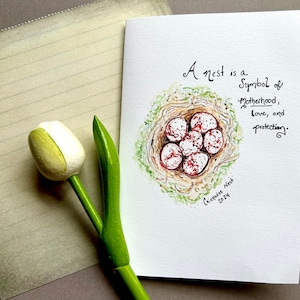 A nest is a
Symbol of
Motherhood,
love, and
protection.
2024